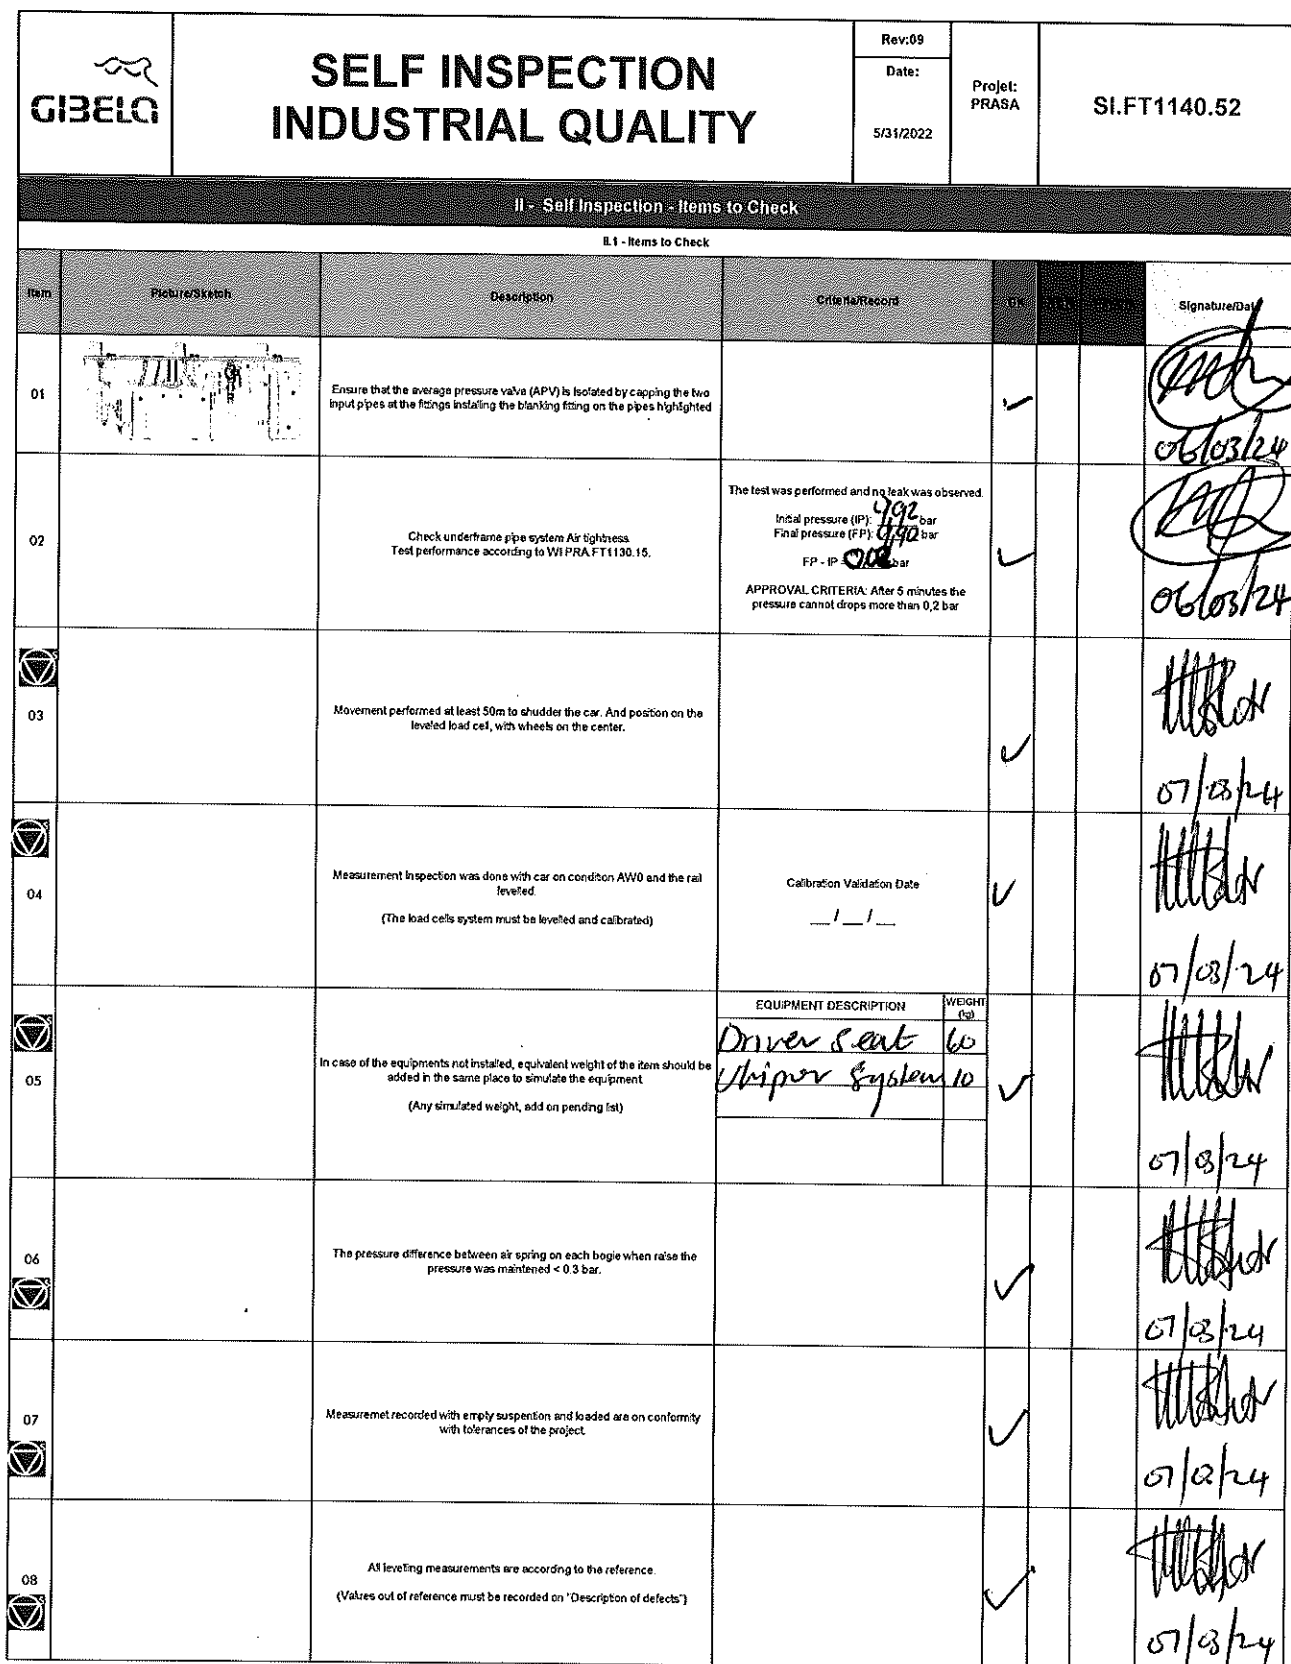 GIBELA
SELF INSPECTION
INDUSTRIAL QUALITY
Rev:09
Date:
5/31/2022
Projet:
PRASA
SI.FT1140.52
II - Self Inspection - Items to Check
II.1 - Items to Check
Item
Picture/Sketch
Description
Criteria/Record
OK
Signature/Dat
01
Ensure that the average pressure valve (APV) is isolated by capping the two
input pipes at the fittings installing the blanking fitting on the pipes highlighted
06/03/24
02
Check underframe pipe system Air tightness
Test performance according to WI PRA FT1130.15.
The test was performed and no leak was observed.
Initial pressure (IP): bar
Final pressure (FP): bar
FP - IP = bar
APPROVAL CRITERIA: After 5 minutes the
pressure cannot drops more than 0,2 bar
06/03/24
03
Movement performed at least 50m to shudder the car. And position on the
leveled load cell, with wheels on the center.
07/03/24
04
Measurement Inspection was done with car on condition AW0 and the rail
levelled.
(The load cells system must be levelled and calibrated)
Calibration Validation Date
__/__/__
07/03/24
05
In case of the equipments not installed, equivalent weight of the item should be
added in the same place to simulate the equipment
(Any simulated weight, add on pending list)
EQUIPMENT DESCRIPTION
WEIGHT
(kg)
Driver seat 60
System 10
07/03/24
06
The pressure difference between air spring on each bogie when raise the
pressure was maintened < 0.3 bar.
07/03/24
07
Measuremet recorded with empty suspention and loaded are on conformity
with tolerances of the project.
07/03/24
08
All leveling measurements are according to the reference.
(Values out of reference must be recorded on "Description of defects")
07/03/24